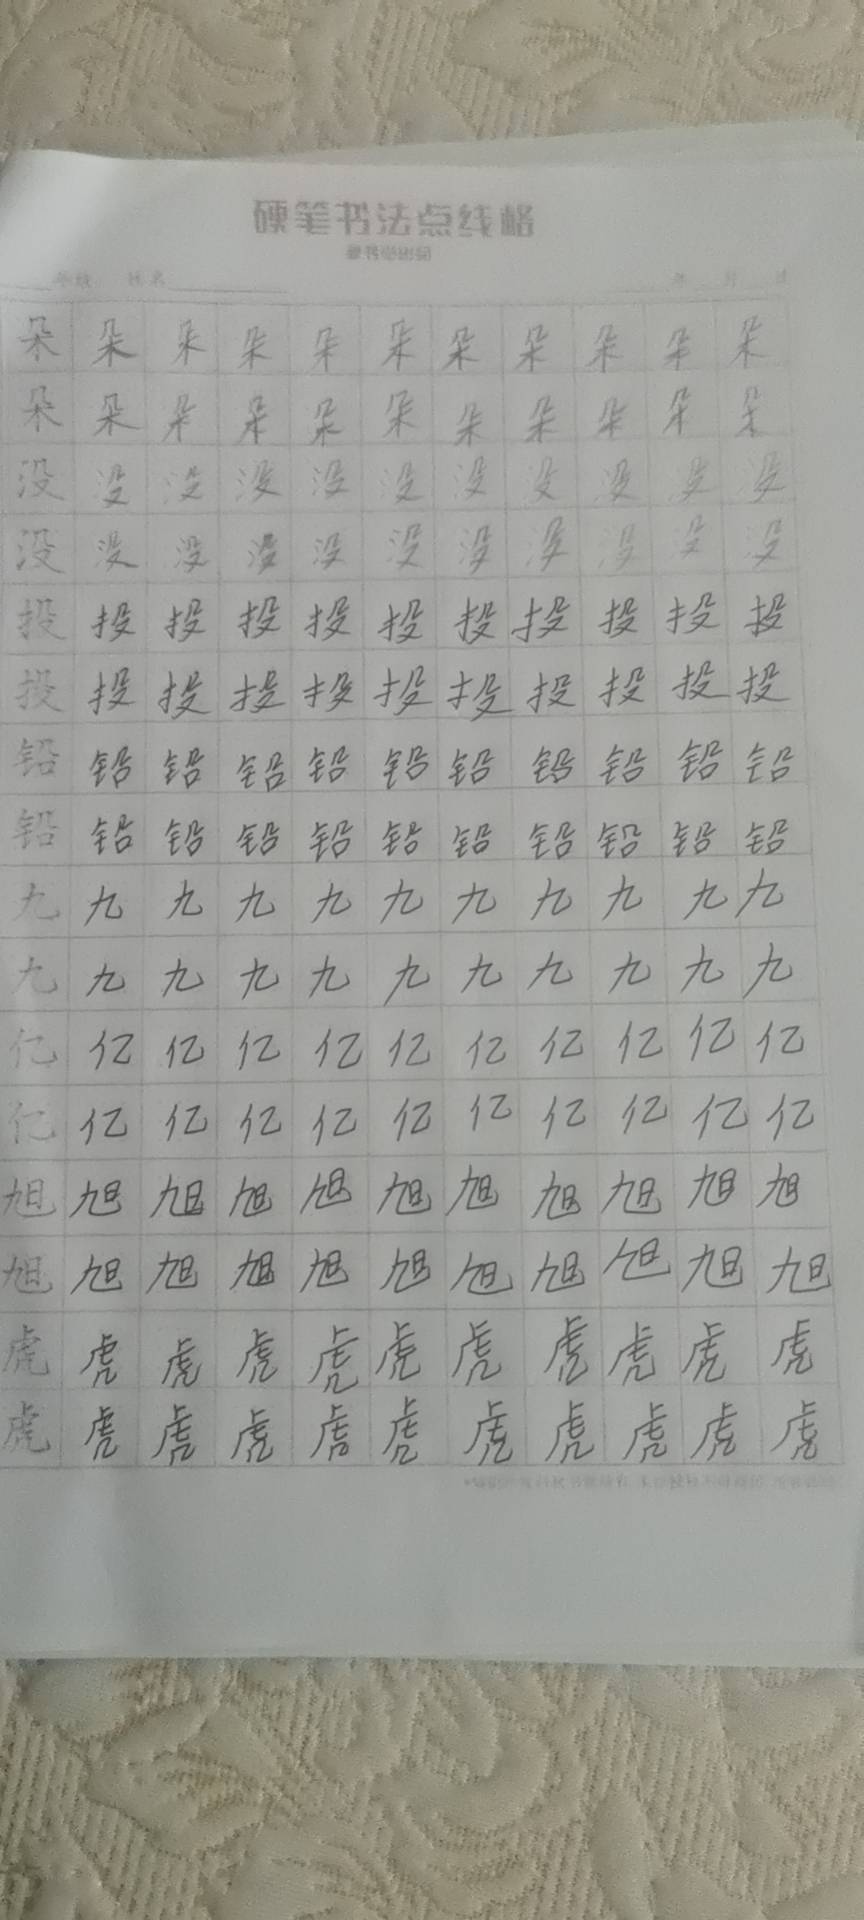 硬笔书法点线格
年级 姓名 年 月 日
朵 朵 朵 朵 朵 朵 朵 朵 朵 朵 朵
朵 朵 朵 朵 朵 朵 朵 朵 朵 朵 朵
没 没 没 没 没 没 没 没 没 没 没
没 没 没 没 没 没 没 没 没 没 没
投 投 投 投 投 投 投 投 投 投 投
投 投 投 投 投 投 投 投 投 投 投
铅 铅 铅 铅 铅 铅 铅 铅 铅 铅 铅
铅 铅 铅 铅 铅 铅 铅 铅 铅 铅 铅
九 九 九 九 九 九 九 九 九 九 九
九 九 九 九 九 九 九 九 九 九 九
亿 亿 亿 亿 亿 亿 亿 亿 亿 亿 亿
亿 亿 亿 亿 亿 亿 亿 亿 亿 亿 亿
旭 旭 旭 旭 旭 旭 旭 旭 旭 旭 旭
旭 旭 旭 旭 旭 旭 旭 旭 旭 旭 旭
虎 虎 虎 虎 虎 虎 虎 虎 虎 虎 虎
虎 虎 虎 虎 虎 虎 虎 虎 虎 虎 虎